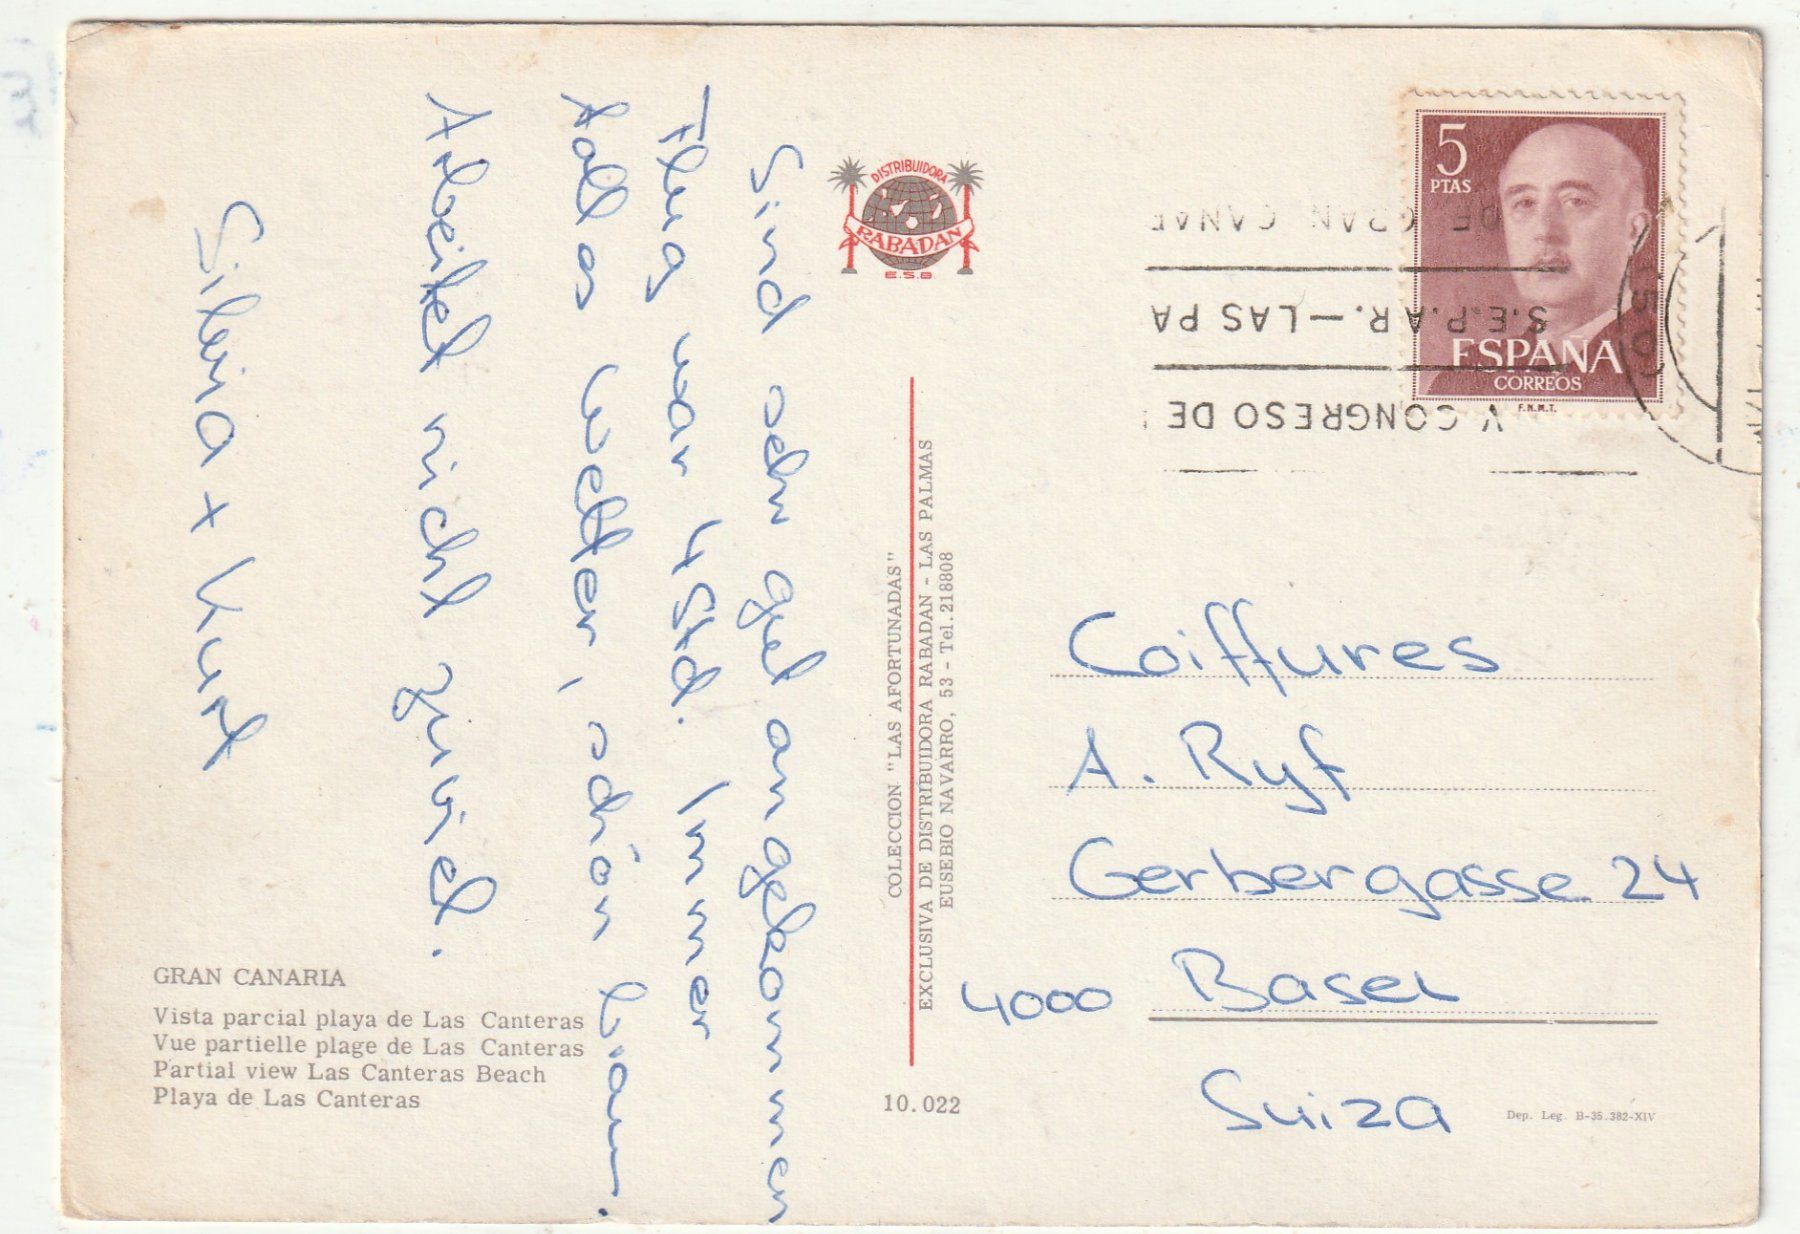 Sind sehr gut angekommen
Flug war 4 Std. Immer
tolles Wetter, schön braun.
Arbeitet nicht zuviel.
Silvia + Kurt
GRAN CANARIA
Vista parcial playa de Las Canteras
Vue partielle plage de Las Canteras
Partial view Las Canteras Beach
Playa de Las Canteras
DISTRIBUIDORA
RABADAN
E.S.B
COLECCION "LAS AFORTUNADAS"
EXCLUSIVA DE DISTRIBUIDORA RABADAN - LAS PALMAS
EUSEBIO NAVARRO, 53 - Tel. 218808
10.022
5
PTAS
ESPAÑA
CORREOS
F.N.M.T.
V CONGRESO DE
S.E.P.A.R.—LAS PA
DE GRAN CANAR
Coiffures
A. Ryf
Gerbergasse 24
4000 Basel
Suiza
Dep. Leg. B-35.382-XIV